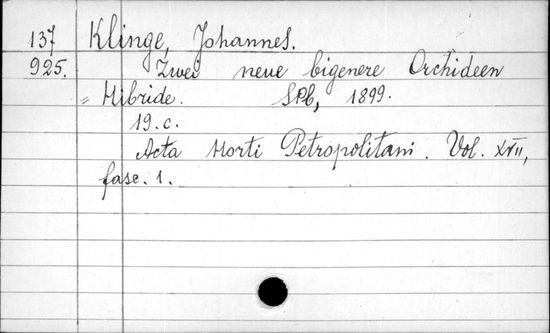 137 Klinge, Johannes.
925. Zwei neue bigenere Orchideen
= Hibride. SPb, 1899.
19.c.
Acta Horti Petropolitani. Vol. XVII,
fasc. 1.